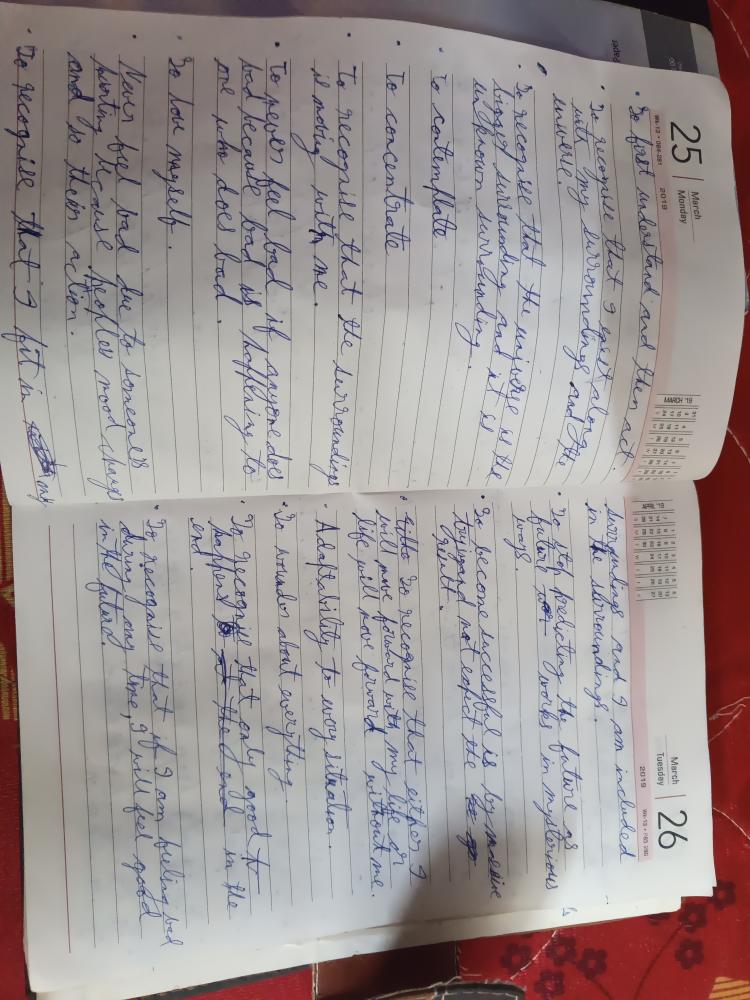 25
March
Monday
2019
Wk-13 • 084-281
MARCH '19
• To first understand and then act.
• To recognise that I exist along
with my surroundings and the
universe.
• To recognise that the universe is the
bigger surrounding and it is
unknown surrounding.
• To contemplate
• To concentrate
• To recognise that the surroundings
is moving with me.
• To never feel bad if anyone does
bad because bad is happening to
one who does bad.
• To love myself.
• Never feel bad due to someone's
parting because peoples mood changes
and so their action.
• To recognise that I fit in my
March
Tuesday
26
2019
surroundings and I am included
in the surroundings.
• To stop predicting the future as
future works in mysterious
ways.
• To become successful is by massive
and not expect the
result.
• To recognise that either I
will move forward with my life or
life will move forward without me.
• Adaptability to every situation.
• To wonder about everything.
• To recognise that only good to
happen in the
end.
• To recognise that if I am feeling bad
during any time, I will feel good
in the future.